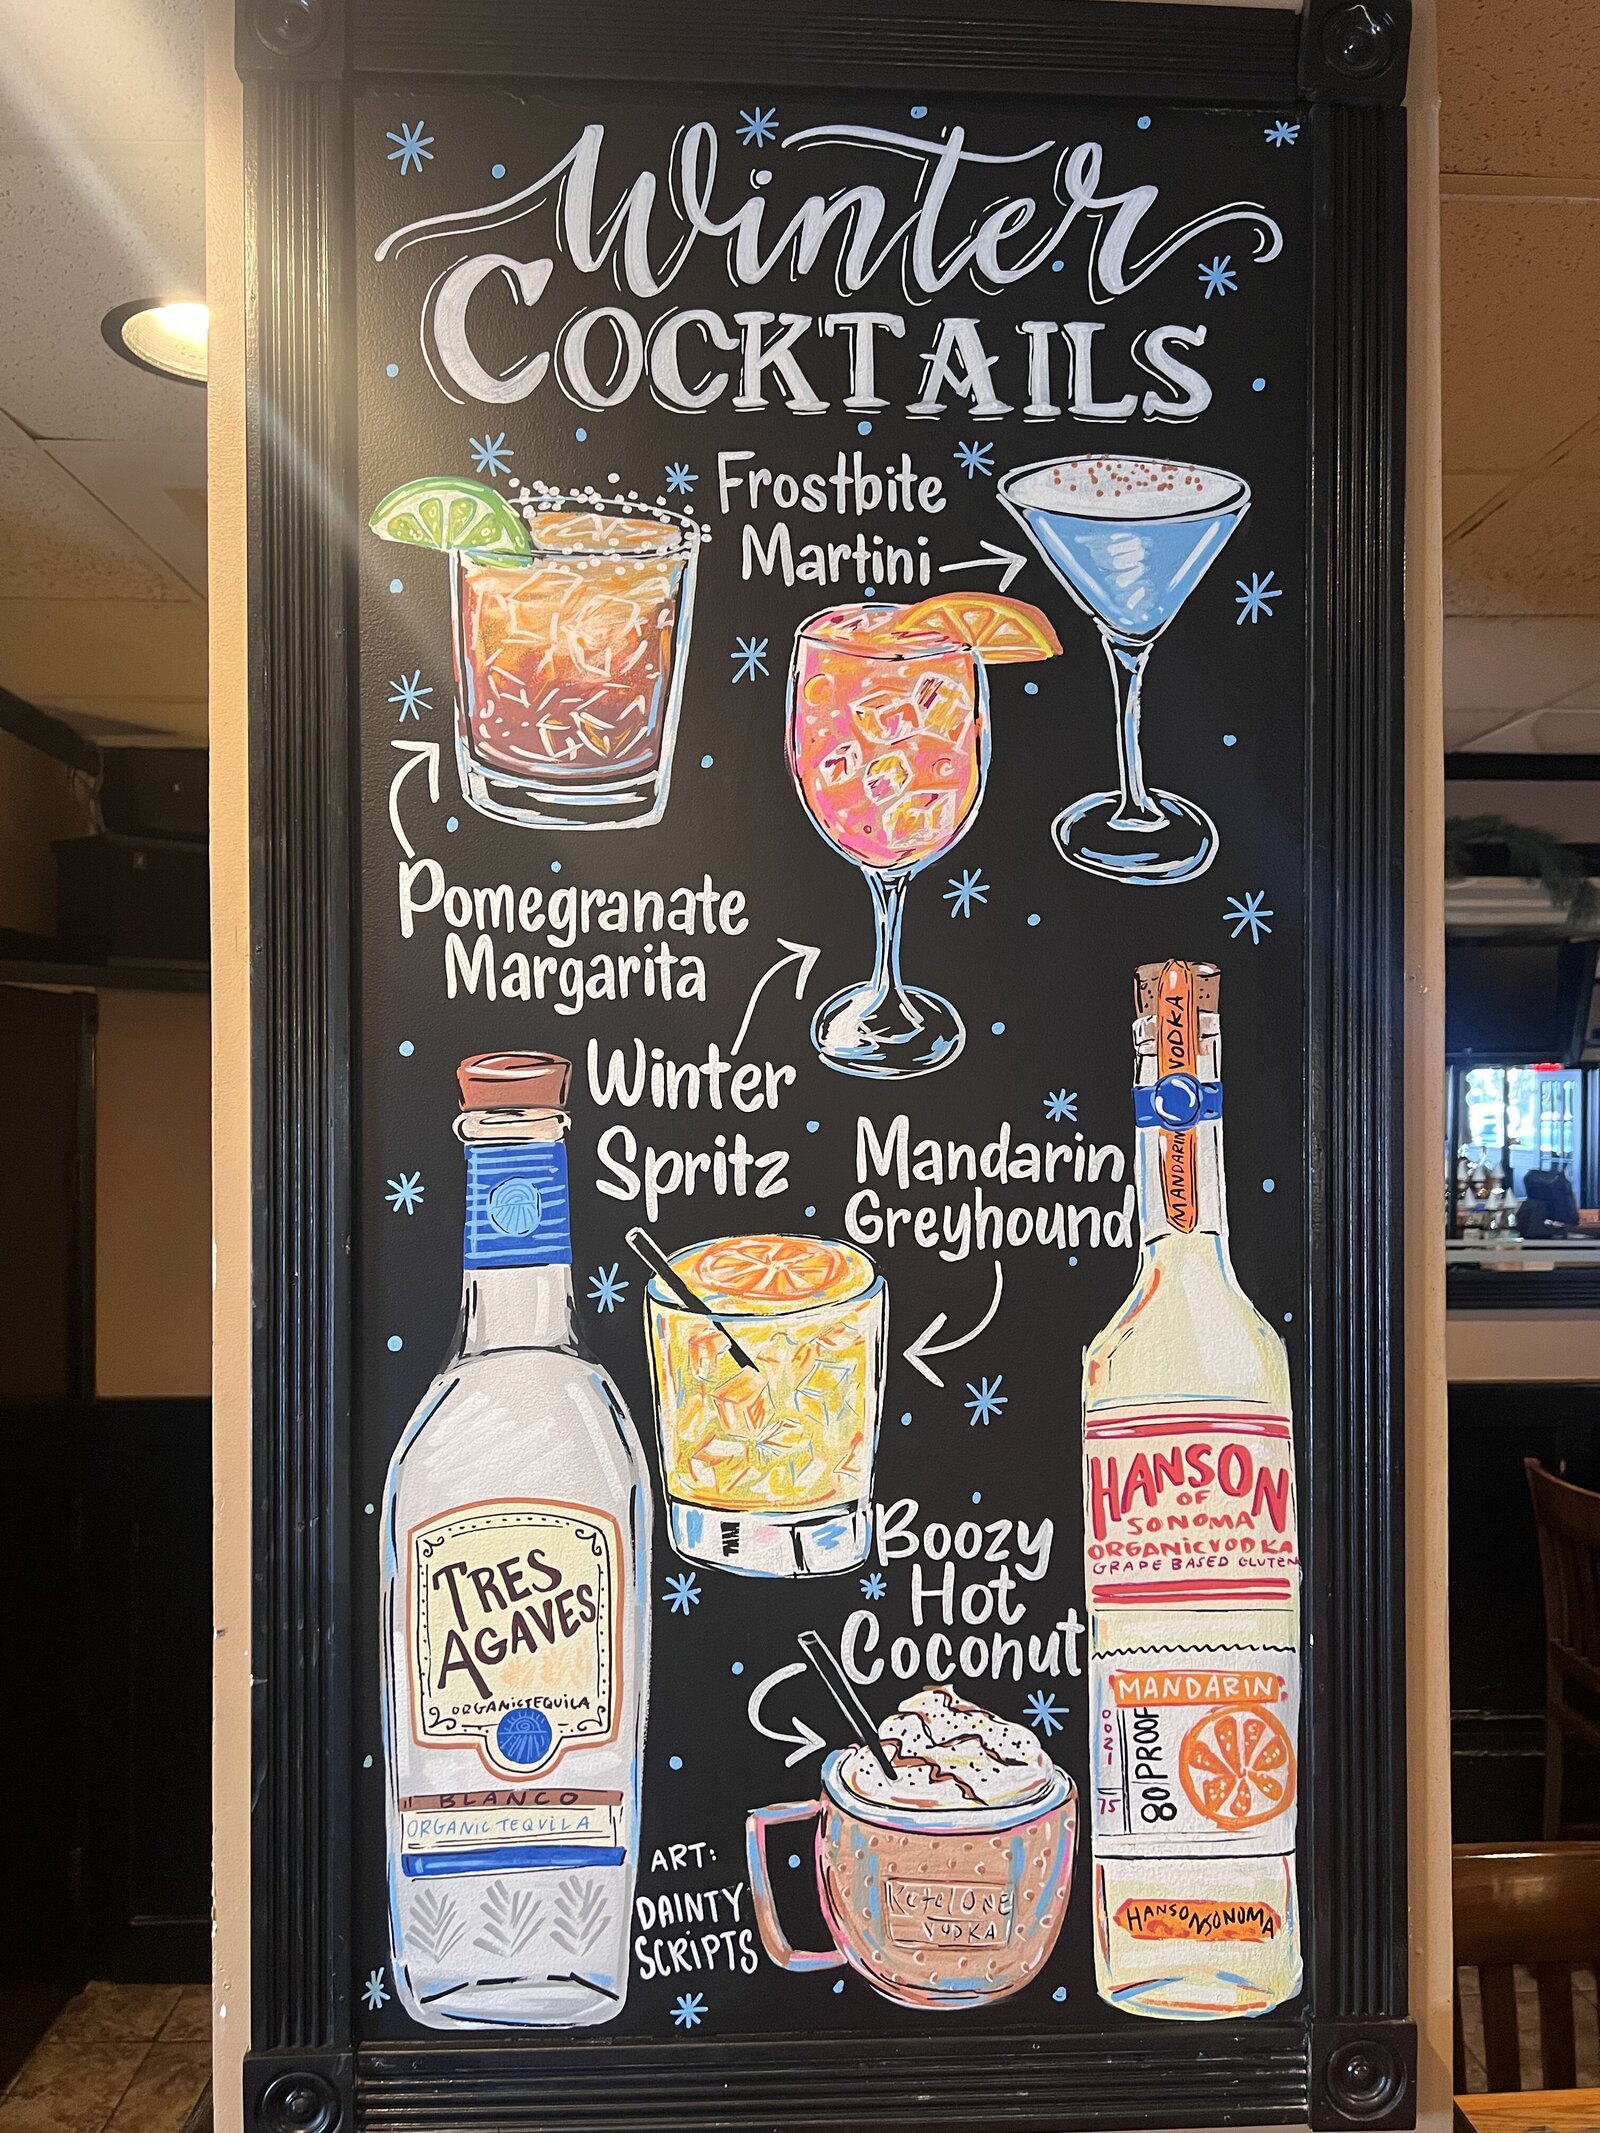 Winter
COCKTAILS
Frostbite
Martini
Pomegranate
Margarita
Winter
Spritz
Mandarin
Greyhound
MANDARIN VODKA
Boozy
Hot
Coconut
TRES
AGAVES
ORGANIC TEQUILA
BLANCO
ORGANIC TEQUILA
HANSON
OF
SONOMA
ORGANIC VODKA
GRAPE BASED GLUTEN
MANDARIN
80 PROOF
HANSON SONOMA
Ketel ONE
VODKA
ART:
DAINTY
SCRIPTS